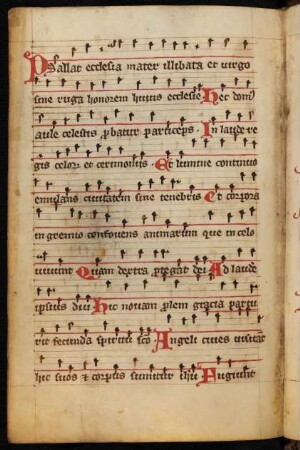 Psallat ecclesia mater illibata et virgo
sine ruga honorem huius ecclesie Hec dom9
aule celestis pbatur particeps In laude re
gis celoru et cerimoniis Et lumine continuo
emulans civitatem sine tenebris Et corpora
in gremio confovens animarum que in celo
vivunt Quam dextra ptegat dei Ad laude
ipsius diu Hic novam plem gracia partu
rit fecunda spiritu sco Angeli cives visitat
hic suos & corpus sumitur ihu Fugiunt